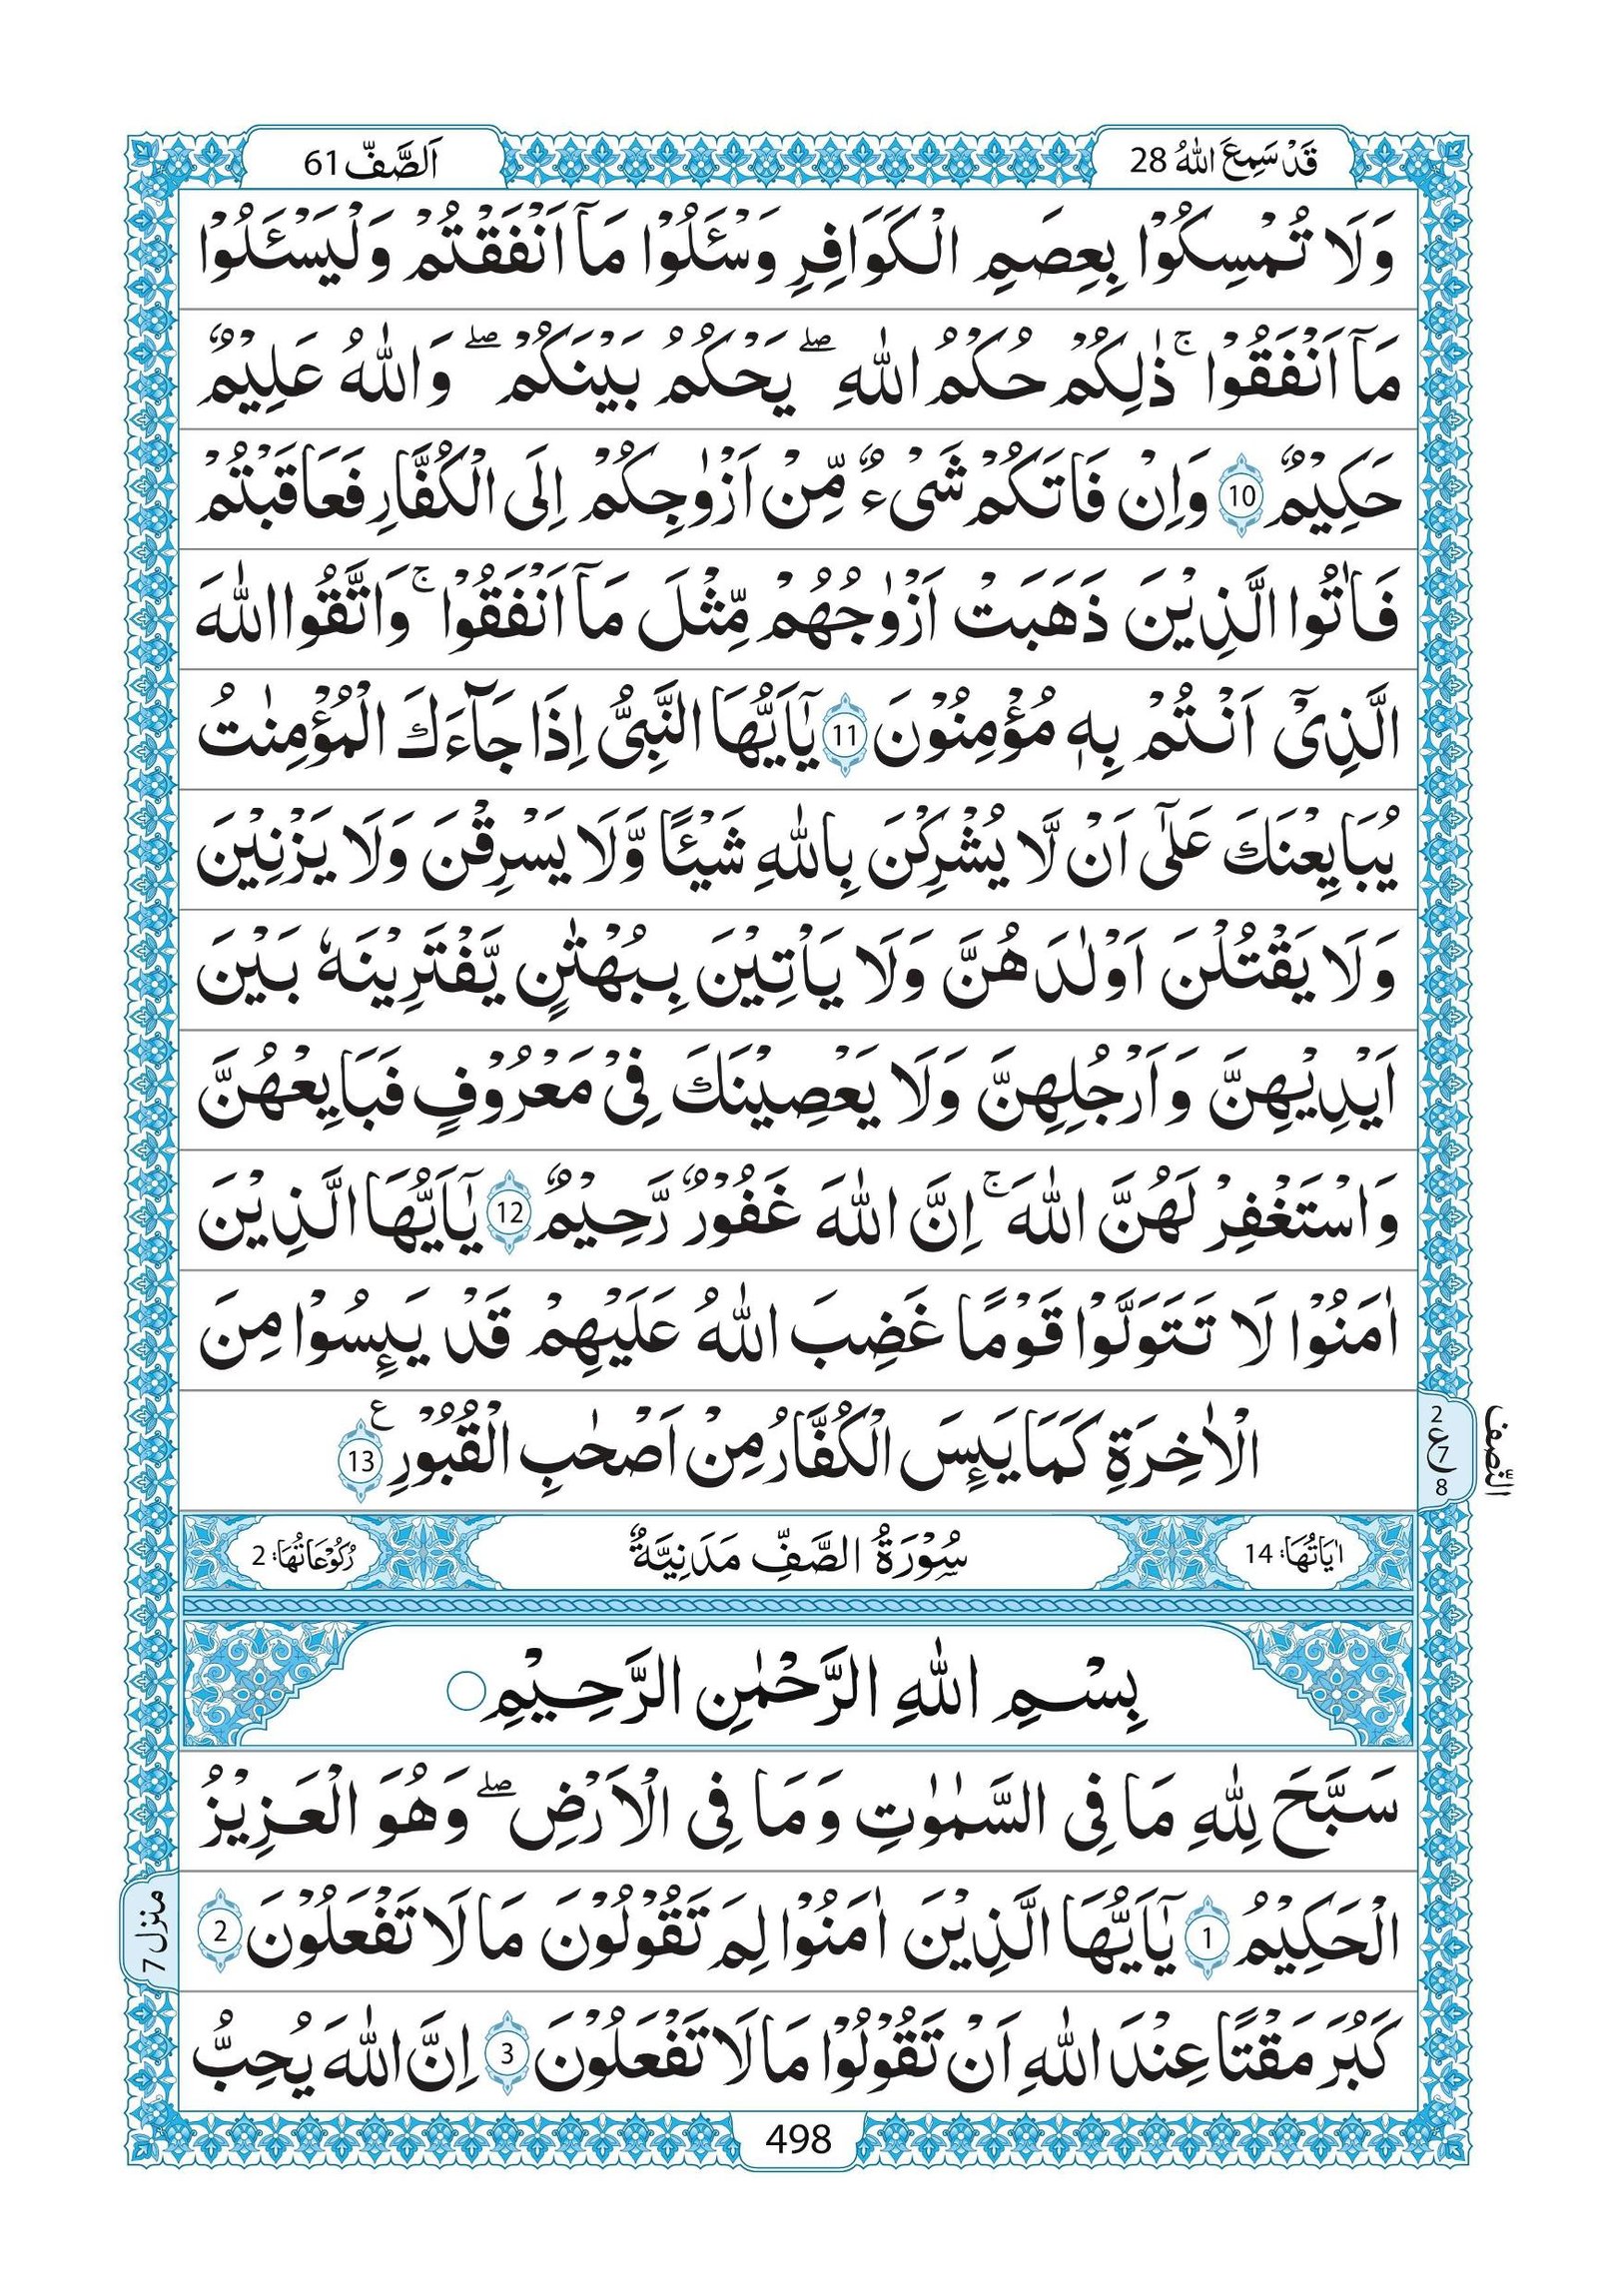 قَدْ سَمِعَ اللّٰهُ 28
اَلصَّفّ 61
وَلَا تُمْسِكُوْا بِعِصَمِ الْكَوَافِرِ وَسْـَٔلُوْا مَاۤ اَنْفَقْتُمْ وَلْيَسْـَٔلُوْا
مَاۤ اَنْفَقُوْا ۚ ذٰلِكُمْ حُكْمُ اللّٰهِ ۖ يَحْكُمُ بَيْنَكُمْ ۖ وَاللّٰهُ عَلِيْمٌ
حَكِيْمٌ 10 وَاِنْ فَاتَكُمْ شَىْءٌ مِّنْ اَزْوٰجِكُمْ اِلَى الْكُفَّارِ فَعَاقَبْتُمْ
فَاٰتُوا الَّذِيْنَ ذَهَبَتْ اَزْوٰجُهُمْ مِّثْلَ مَاۤ اَنْفَقُوْا ۚ وَاتَّقُوا اللّٰهَ
الَّذِىْۤ اَنْتُمْ بِهٖ مُؤْمِنُوْنَ 11 يٰۤاَيُّهَا النَّبِىُّ اِذَا جَاۤءَكَ الْمُؤْمِنٰتُ
يُبَايِعْنَكَ عَلٰۤى اَنْ لَّا يُشْرِكْنَ بِاللّٰهِ شَيْـًٔا وَّلَا يَسْرِقْنَ وَلَا يَزْنِيْنَ
وَلَا يَقْتُلْنَ اَوْلٰدَهُنَّ وَلَا يَاْتِيْنَ بِبُهْتٰنٍ يَّفْتَرِيْنَهٗ بَيْنَ
اَيْدِيْهِنَّ وَاَرْجُلِهِنَّ وَلَا يَعْصِيْنَكَ فِىْ مَعْرُوْفٍ فَبَايِعْهُنَّ
وَاسْتَغْفِرْ لَهُنَّ اللّٰهَ ۚ اِنَّ اللّٰهَ غَفُوْرٌ رَّحِيْمٌ 12 يٰۤاَيُّهَا الَّذِيْنَ
اٰمَنُوْا لَا تَتَوَلَّوْا قَوْمًا غَضِبَ اللّٰهُ عَلَيْهِمْ قَدْ يَىِٕسُوْا مِنَ
الْاٰخِرَةِ كَمَا يَىِٕسَ الْكُفَّارُ مِنْ اَصْحٰبِ الْقُبُوْرِ ع 13
2
ع 7
8
النّصف
اٰيَاتُهَا: 14
سُوْرَةُ الصَّفِّ مَدَنِيَّةٌ
رُكُوْعَاتُهَا: 2
بِسْمِ اللّٰهِ الرَّحْمٰنِ الرَّحِيْمِ
سَبَّحَ لِلّٰهِ مَا فِى السَّمٰوٰتِ وَمَا فِى الْاَرْضِ ۖ وَهُوَ الْعَزِيْزُ
الْحَكِيْمُ 1 يٰۤاَيُّهَا الَّذِيْنَ اٰمَنُوْا لِمَ تَقُوْلُوْنَ مَا لَا تَفْعَلُوْنَ 2
كَبُرَ مَقْتًا عِنْدَ اللّٰهِ اَنْ تَقُوْلُوْا مَا لَا تَفْعَلُوْنَ 3 اِنَّ اللّٰهَ يُحِبُّ
منزل 7
498